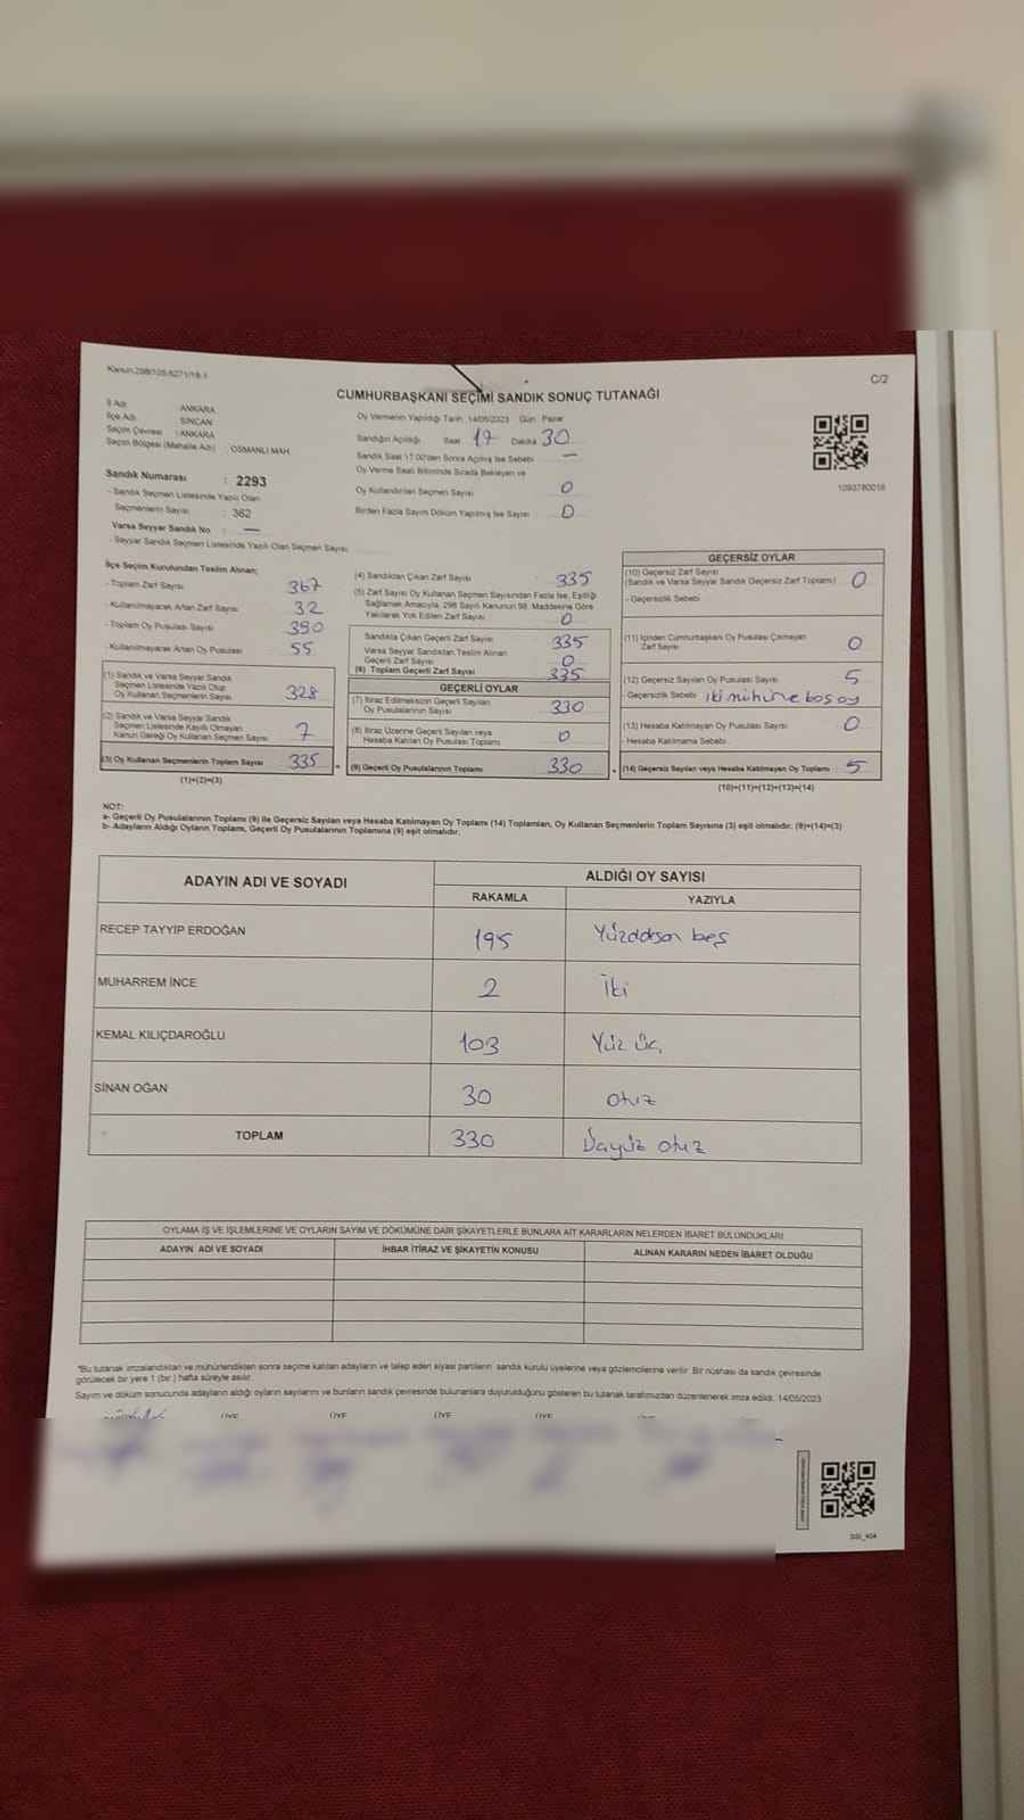 Kanun:298/105,6271/19-1
C/2
CUMHURBAŞKANI SEÇİMİ SANDIK SONUÇ TUTANAĞI
İl Adı : ANKARA
İlçe Adı : SİNCAN
Seçim Çevresi : ANKARA
Seçim Bölgesi (Mahalle Adı) : OSMANLI MAH.
Sandık Numarası : 2293
- Sandık Seçmen Listesinde Yazılı Olan
Seçmenlerin Sayısı : 362
Varsa Seyyar Sandık No : —
- Seyyar Sandık Seçmen Listesinde Yazılı Olan Seçmen Sayısı
Oy Vermenin Yapıldığı Tarih: 14/05/2023 Gün: Pazar
Sandığın Açıldığı Saat 17 Dakika 30
Sandık Saat 17:00'den Sonra Açılmış İse Sebebi —
Oy Verme Saati Bitiminde Sırada Bekleyen ve
Oy Kullandırılan Seçmen Sayısı 0
Birden Fazla Sayım Döküm Yapılmış İse Sayısı 0
1093780018
İlçe Seçim Kurulundan Teslim Alınan;
- Toplam Zarf Sayısı 367
- Kullanılmayarak Artan Zarf Sayısı 32
- Toplam Oy Pusulası Sayısı 390
- Kullanılmayarak Artan Oy Pusulası 55
(1) Sandık ve Varsa Seyyar Sandık
Seçmen Listesinde Yazılı Olup
Oy Kullanan Seçmenlerin Sayısı 328
(2) Sandık ve Varsa Seyyar Sandık
Seçmen Listesinde Kayıtlı Olmayan
Kanun Gereği Oy Kullanan Seçmen Sayısı 7
(3) Oy Kullanan Seçmenlerin Toplam Sayısı 335
(1)+(2)=(3)
(4) Sandıktan Çıkan Zarf Sayısı 335
(5) Zarf Sayısı Oy Kullanan Seçmen Sayısından Fazla İse, Eşitliği
Sağlamak Amacıyla, 298 Sayılı Kanunun 98. Maddesine Göre
Yakılarak Yok Edilen Zarf Sayısı 0
Sandıkta Çıkan Geçerli Zarf Sayısı 335
Varsa Seyyar Sandıktan Teslim Alınan
Geçerli Zarf Sayısı 0
(6) Toplam Geçerli Zarf Sayısı 335
GEÇERLİ OYLAR
(7) İtiraz Edilmeksizin Geçerli Sayılan
Oy Pusulalarının Sayısı 330
(8) İtiraz Üzerine Geçerli Sayılan veya
Hesaba Katılan Oy Pusulası Toplamı 0
(9) Geçerli Oy Pusulalarının Toplamı 330
GEÇERSİZ OYLAR
(10) Geçersiz Zarf Sayısı
(Sandık ve Varsa Seyyar Sandık Geçersiz Zarf Toplamı) 0
- Geçersizlik Sebebi
(11) İçinden Cumhurbaşkanı Oy Pusulası Çıkmayan
Zarf Sayısı 0
(12) Geçersiz Sayılan Oy Pusulası Sayısı 5
- Geçersizlik Sebebi iki mühür ve boş oy
(13) Hesaba Katılmayan Oy Pusulası Sayısı 0
- Hesaba Katılmama Sebebi
(14) Geçersiz Sayılan veya Hesaba Katılmayan Oy Toplamı 5
(10)+(11)+(12)+(13)=(14)
NOT:
a- Geçerli Oy Pusulalarının Toplamı (9) ile Geçersiz Sayılan veya Hesaba Katılmayan Oy Toplamı (14) Toplamları, Oy Kullanan Seçmenlerin Toplam Sayısına (3) eşit olmalıdır. (9)+(14)=(3)
b- Adayların Aldığı Oyların Toplamı, Geçerli Oy Pusulalarının Toplamına (9) eşit olmalıdır.
ADAYIN ADI VE SOYADI ALDIĞI OY SAYISI
RAKAMLA YAZIYLA
RECEP TAYYİP ERDOĞAN 195 Yüzdoksan beş
MUHARREM İNCE 2 İki
KEMAL KILIÇDAROĞLU 103 Yüz üç
SİNAN OĞAN 30 otuz
TOPLAM 330 Üçyüz otuz
OYLAMA İŞ VE İŞLEMLERİNE VE OYLARIN SAYIM VE DÖKÜMÜNE DAİR ŞİKAYETLERLE BUNLARA AİT KARARLARIN NELERDEN İBARET BULUNDUKLARI
ADAYIN ADI VE SOYADI İHBAR İTİRAZ VE ŞİKAYETİN KONUSU ALINAN KARARIN NEDEN İBARET OLDUĞU
*Bu tutanak imzalandıktan ve mühürlendikten sonra seçime katılan adayların ve talep eden siyasi partilerin sandık kurulu üyelerine veya gözlemcilerine verilir. Bir nüshası da sandık çevresinde
görülecek bir yere 1 (bir) hafta süreyle asılır.
Sayım ve döküm sonucunda adayların aldığı oyların sayılarını ve bunların sandık çevresinde bulunanlara duyurulduğunu gösteren bu tutanak tarafımızdan düzenlenerek imza edildi. 14/05/2023
ÜYE ÜYE ÜYE ÜYE